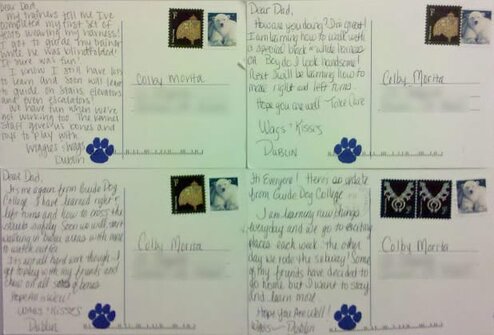 Dear Dad,
My trainers tell me I've
completed my first set of
wearing my harness!
I got to guide my trainer
while he was blindfolded!
It sure was fun!
I know I still have lots
to learn and soon will learn
to guide on stairs, elevators
and even escalators!
We have fun when we're
not working too. The kennel
staff gives us bones and
toys to play with.
Wiggles & Wags
Dublin
Colby Morita
Dear Dad,
How are you doing? I'm great!
I am learning how to walk with
a special black & white harness
on. Boy do I look handsome!
Next I will be learning how to
make right and left turns.
Hope you are well - Take Care
Wags & Kisses
Dublin
Colby Morita
Dear Dad,
It's me again from Guide Dog
College. I have learned right &
left turns and how to cross the
streets safely. Soon we will start
walking in busier areas with more
to watch out for.
It's not all hard work though. I
get to play with my friends and
chew on all sorts of bones.
Hope All is Well!
Wags & Kisses
Dublin
Colby Morita
Hi Everyone! Here's an update
from Guide Dog College.
I am learning new things
everyday and we go to exciting
places each week. The other
day we rode the subway! Some
of my friends have decided to
go home, but I want to stay
and learn more.
Hope You Are Well!
Kisses ~ Dublin
Colby Morita